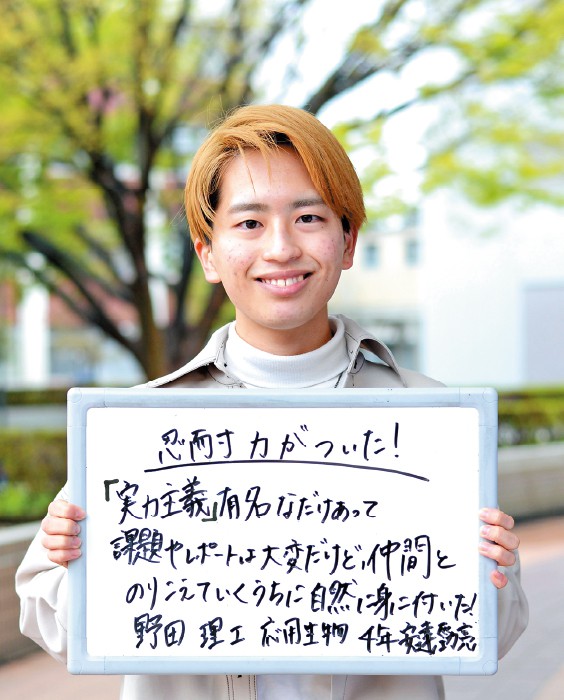 忍耐力がついた!
「実力主義」有名なだけあって
課題やレポートは大変だけど、仲間と
のりこえていくうちに自然に身に付いた!
野田 理工 応用生物 4年 安達勁亮